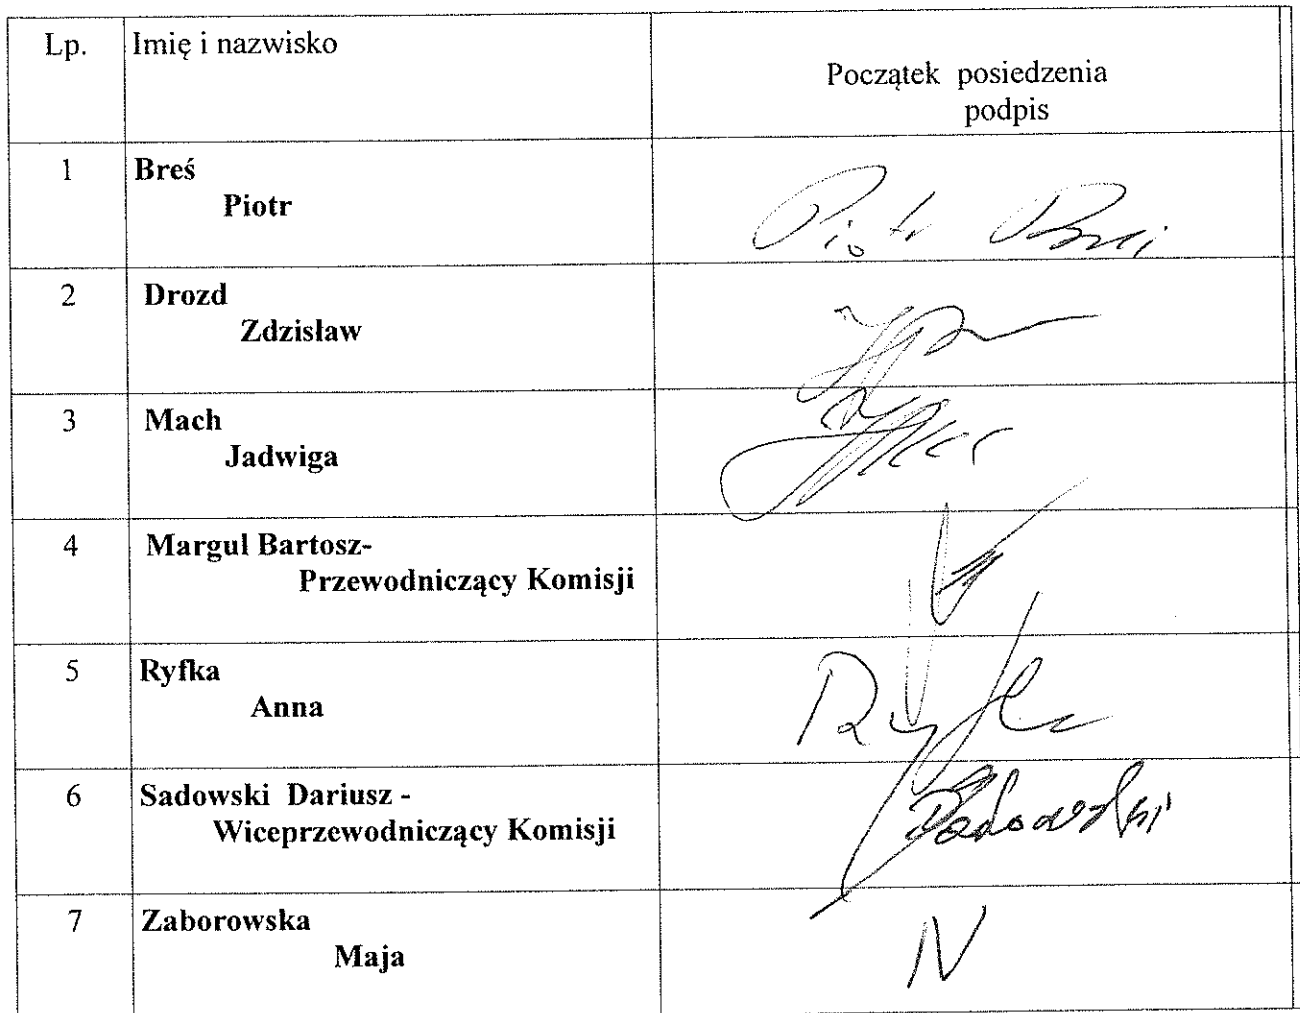 Lp. Imię i nazwisko
Początek posiedzenia
podpis
1 Breś
Piotr
Piotr Breś
2 Drozd
Zdzisław
3 Mach
Jadwiga
4 Margul Bartosz-
Przewodniczący Komisji
5 Ryfka
Anna
Ryfka
6 Sadowski Dariusz -
Wiceprzewodniczący Komisji
Sadowski
7 Zaborowska
Maja
N